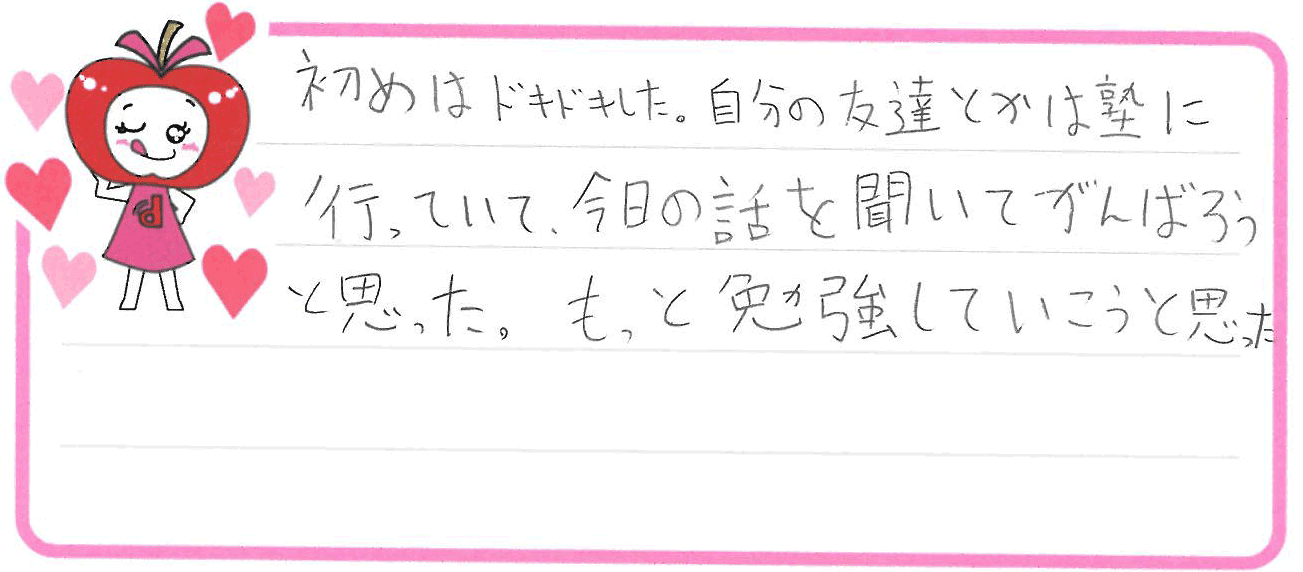 初めはドキドキした。自分の友達とかは塾に
行っていて、今日の話を聞いてがんばろう
と思った。もっと勉強していこうと思った
d